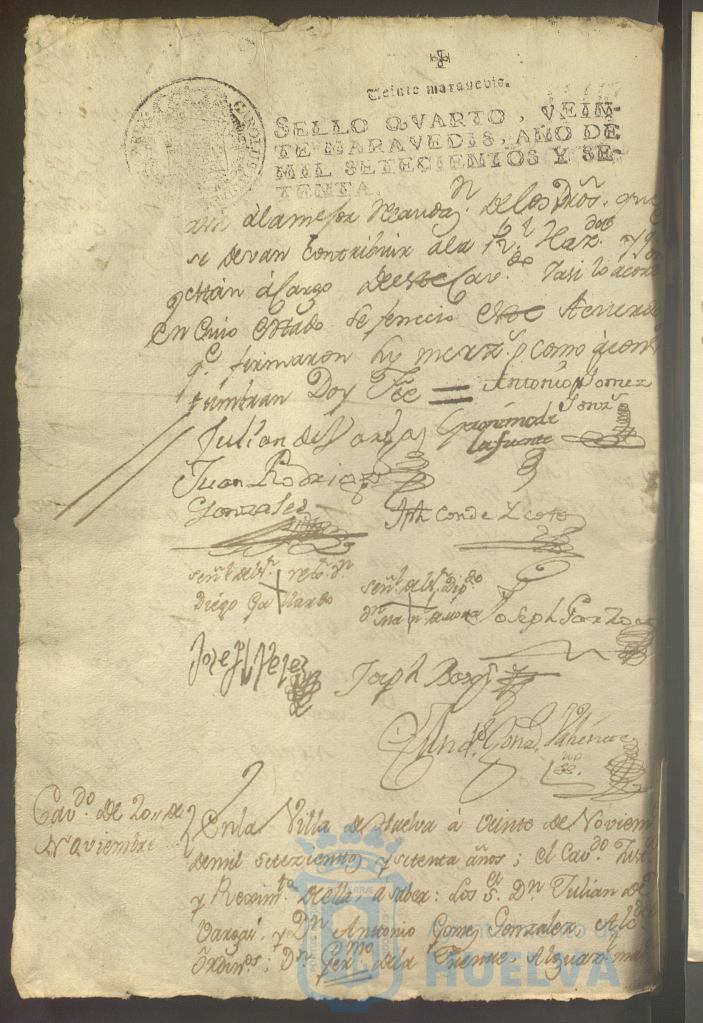 Veinte maravedis.
SELLO QVARTO, VEIN-
TE MARAVEDIS, AÑO DE
MIL SETECIENTOS Y SE-
TENTA.
CAROLUS
à la mejor Recauda.n de los Dros. que
se devan Contribuir ala Haz.da y q
están à Cargo de este Cav.do Y asi lo acor
en Cuio Estado se fenecio este Acuerdo
q.e firmaron sus mrzs. como acos
tumbran Doy Feé =
Antonio Gomez
Gonz.z
Julian de Vargas
Geronimo de
la fuente
Juan Rodrig.z
Gonzales
Conde
señl. de el s.r
Diego Gallardo
señl. de el s.r Dip.do
Joseph Garzon
Josef Perez
Joseph
And.s Gonz.
Cav.do de 20 de
Noviembre
En la Villa de Huelva à Veinte de Noviem
de mil setezientos y setenta años; el Cav.do Just.
y Reximi.to de ella, à saber: Los S.es D.n Julian de
Vargas, y D.n Antonio Gomez Gonzalez, Alc.des
Ordin.os; D.n Ger.mo de la Fuente, Alguazil ma
HUELVA